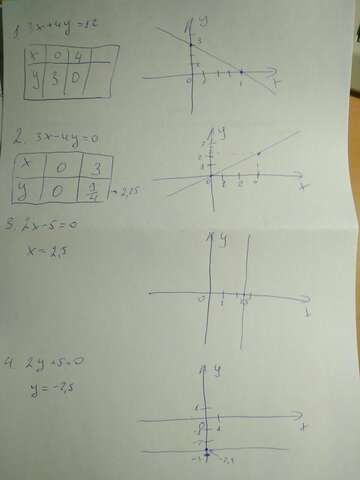 1. 3x+4y=12
x 0 4
y 3 0
y
3
0
x
2. 3x-4y=0
x 0 3
y 0 9/4 → 2,25
y
x
3. 2x-5=0
x=2,5
y
0
x
4. 2y+5=0
y=-2,5
y
x